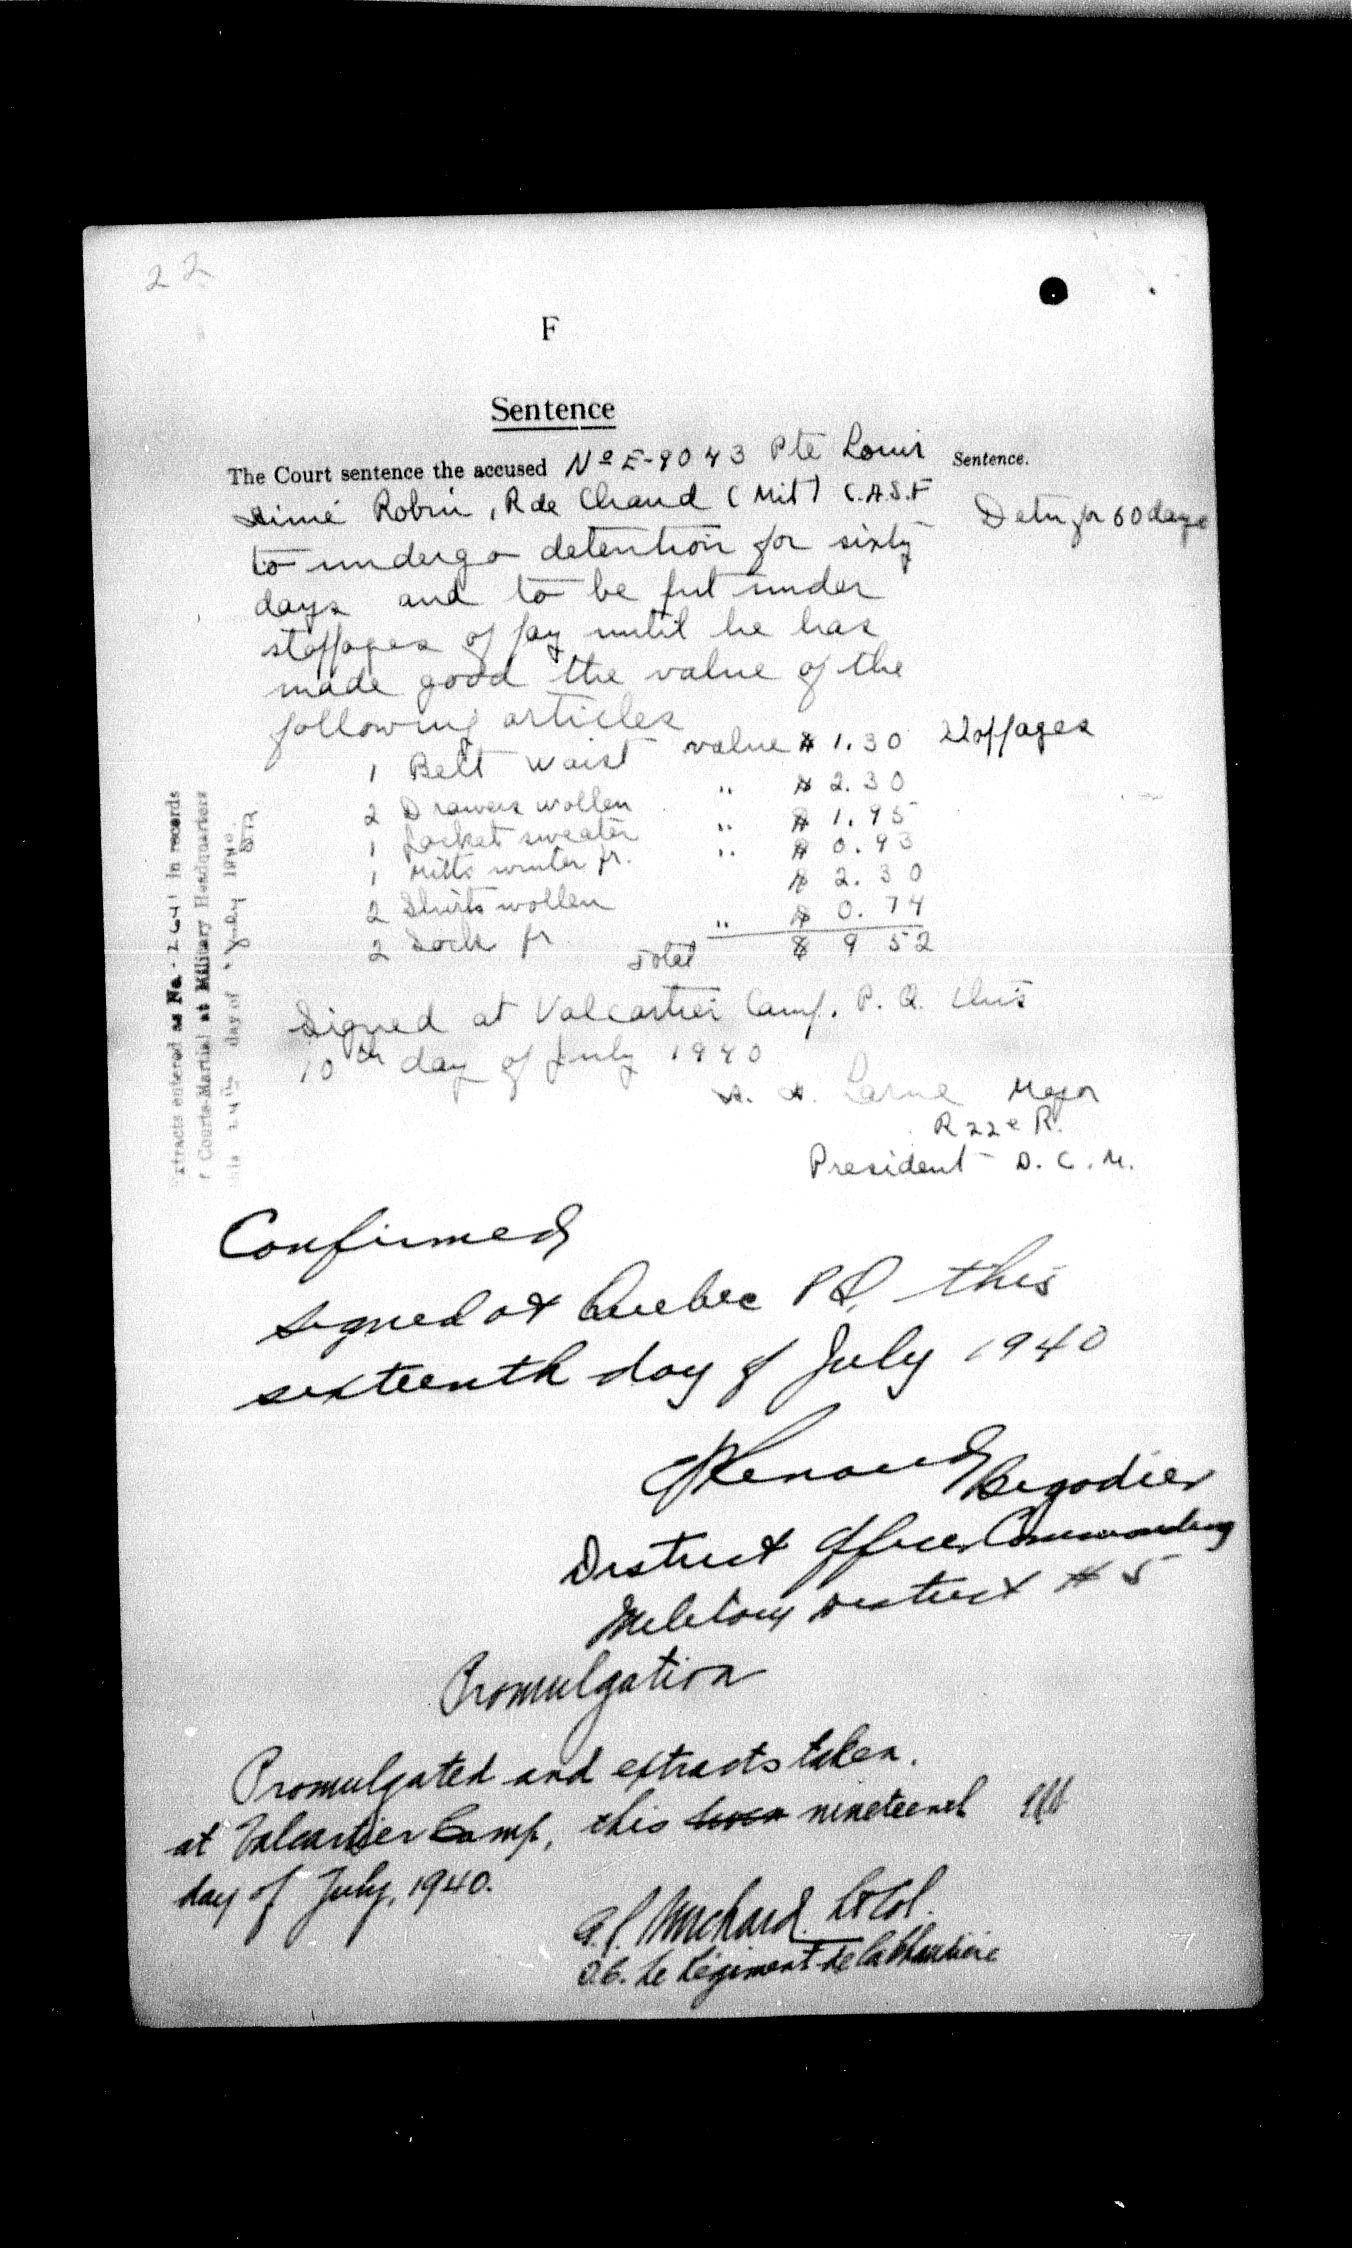 22
F
Sentence
The Court sentence the accused No E-9043 Pte Louis
Sentence.
Aimé Robin, R de Chaud (Mit) C.A.S.F
Detn for 60 days
to undergo detention for sixty
days and to be put under
stoppages of pay until he has
made good the value of the
following articles
Stoppages
1 Belt waist value $ 1.30
2 Drawers wollen " $ 2.30
1 Jacket sweater " $ 1.95
1 Mitts winter pr. " $ 0.93
2 Shirts wollen $ 2.30
2 Sock pr " $ 0.74
Total $ 9 52
Signed at Valcartier Camp, P. Q. this
10th day of July 1940
A. Larue Major
R 22e R.
President D. C. M.
Extracts entered as No. 264 in records
f Courts-Martial at Military Headquarters
this 24th day of July 1940.
Confirmed
Signed at Quebec PQ, this
sixteenth day of July 1940
Renaud Brigadier
District Officer Commanding
Military District # 5
Promulgation
Promulgated and extracts taken.
at Valcartier Camp, this nineteenth
day of July, 1940.
Lt Col.
O.C. Le Régiment de la Chaudière